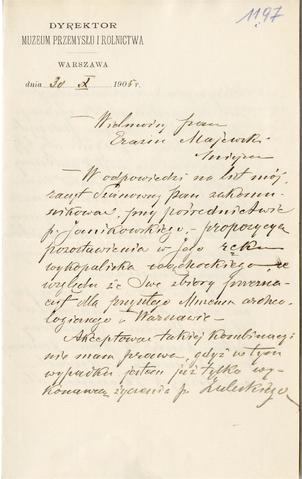 1197
DYREKTOR
MUZEUM PRZEMYSŁU I ROLNICTWA
WARSZAWA
dnia 30 X 1905 r.
Wielmożny pan
Erazm Majewski
w miejscu
W odpowiedzi na list mój,
raczył Szanowny pan zakomu-
nikować, przy pośrednictwie
p. Janikowskiego, - propozycją
pozostawienia w jego ręku
wykopaliska
względu że Swe zbiory przezna-
czył dla przyszłego Muzeum archeo-
logicznego w Warszawie.
Akceptować takiej kombinacji
nie mam prawa, gdyż w tym
wypadku jestem już tylko wy-
konawcą życzenia p. Zuleskiego